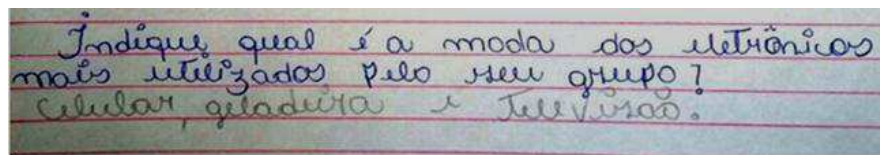 Indique qual é a moda dos eletrônicos
mais utilizados pelo seu grupo?
Celular, geladeira e Televisão.